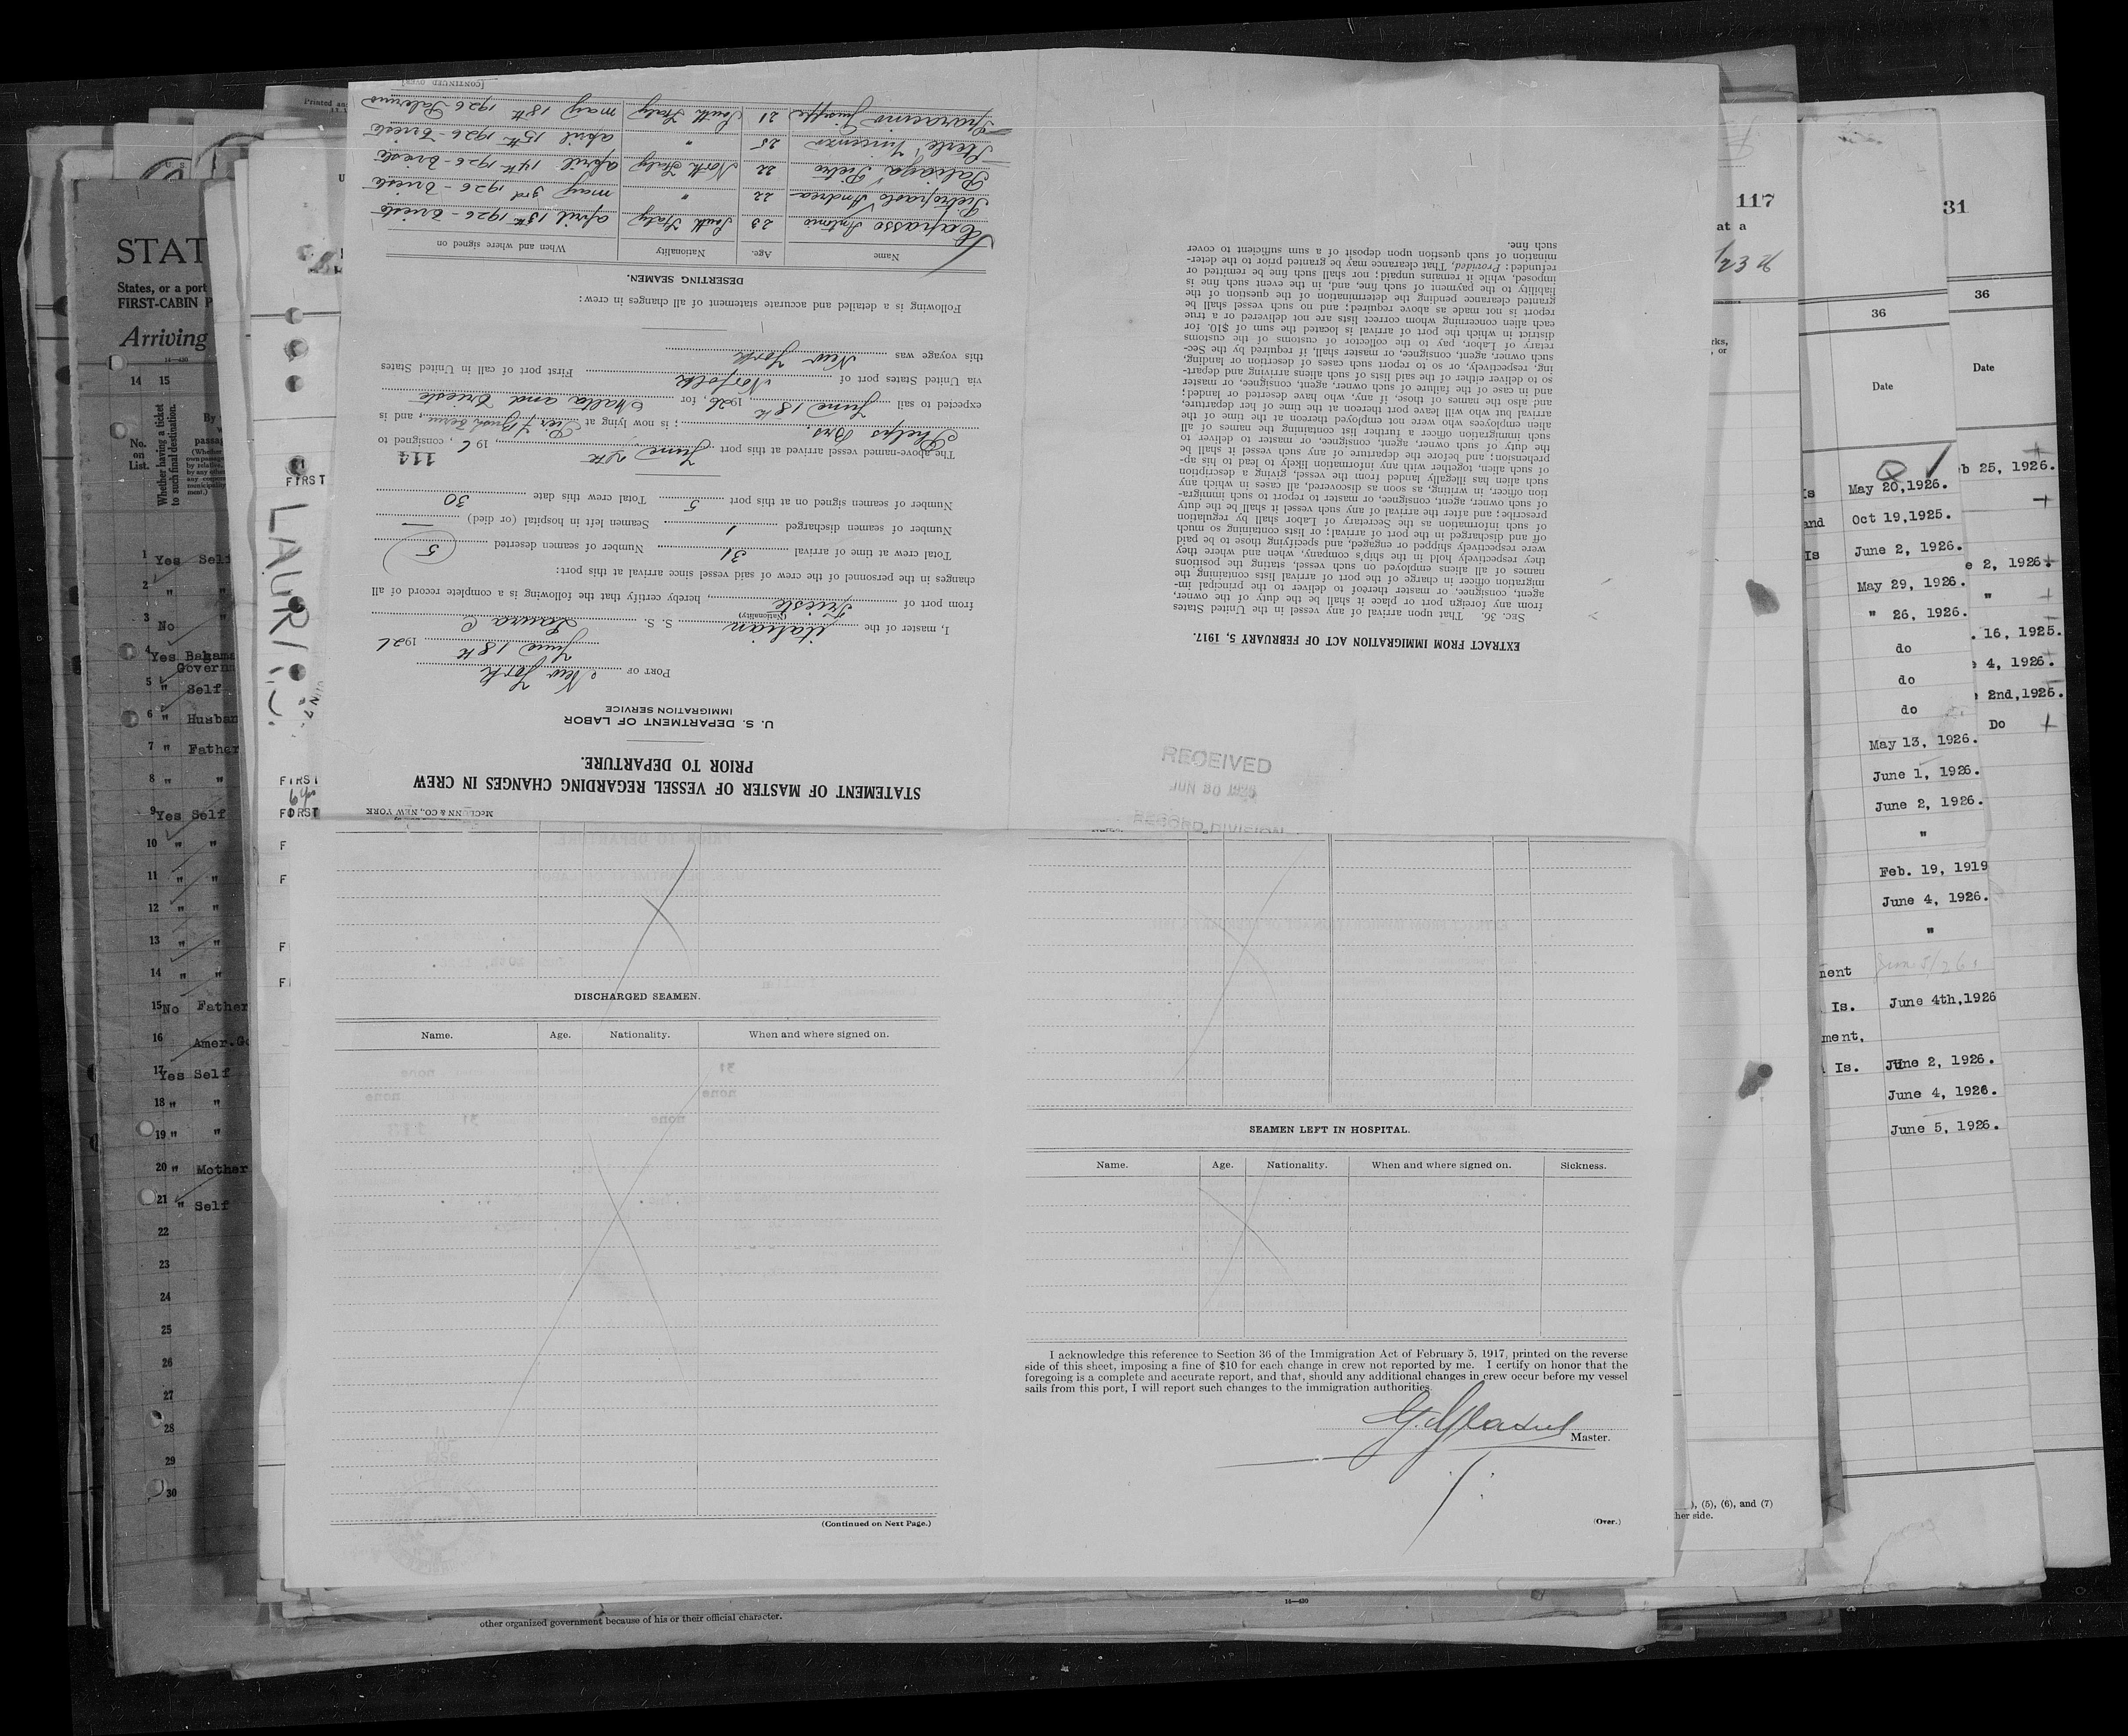 STATEMENT OF MASTER OF VESSEL REGARDING CHANGES IN CREW
PRIOR TO DEPARTURE.
U. S. DEPARTMENT OF LABOR
IMMIGRATION SERVICE
PORT OF New York
June 18th 1926
I, master of the italian S. S. Laura C
(Nationality)
from port of Trieste, hereby certify that the following is a complete record of all
changes in the personnel of the crew of said vessel since arrival at this port:
Total crew at time of arrival 31 Number of seamen deserted 5
Number of seamen discharged 1 Seamen left in hospital (or died) —
Number of seamen signed on at this port 5 Total crew this date 30
114
The above-named vessel arrived at this port June 192 6, consigned to
Phelps Bros. ; is now lying at Pier 7 Bush Term, and is
expected to sail June 18th 1926 for Malta and Trieste
via United States port of Norfolk First port of call in United States
this voyage was New York
Following is a detailed and accurate statement of all changes in crew:
DESERTING SEAMEN.
Name Age. Nationality When and where signed on
Antonio 23 South Italy april 15th 1926 - Trieste
Pietropaolo Andrea 22 " may 3rd 1926 - Trieste
Pietro 22 North Italy april 14th 1926 - Trieste
Sterle Vincenzo 25 " april 15th 1926 - Trieste
Giuseppe 21 South Italy may 18th 1926 Palermo
[CONTINUED OVER]
EXTRACT FROM IMMIGRATION ACT OF FEBRUARY 5, 1917.
SEC. 36. That upon arrival of any vessel in the United States
from any foreign port or place it shall be the duty of the owner,
agent, consignee, or master thereof to deliver to the principal im-
migration officer in charge of the port of arrival lists containing the
names of all aliens employed on such vessel, stating the positions
they respectively hold in the ship's company, when and where they
were respectively shipped or engaged, and specifying those to be paid
off and discharged in the port of arrival; or lists containing so much
of such information as the Secretary of Labor shall by regulation
prescribe; and after the arrival of any such vessel it shall be the duty
of such owner, agent, consignee, or master to report to such immigra-
tion officer, in writing, as soon as discovered, all cases in which any
such alien has illegally landed from the vessel, giving a description
of such alien, together with any information likely to lead to his ap-
prehension; and before the departure of any such vessel it shall be
the duty of such owner, agent, consignee, or master to deliver to
such immigration officer a further list containing the names of all
alien employees who were not employed thereon at the time of the
arrival but who will leave port thereon at the time of her departure,
and also the names of those, if any, who have deserted or landed;
and in case of the failure of such owner, agent, consignee, or master
so to deliver either of the said lists of such aliens arriving and depart-
ing, respectively, or so to report such cases of desertion or landing,
such owner, agent, consignee, or master, shall, if required by the Sec-
retary of Labor, pay to the collector of customs of the customs
district in which the port of arrival is located the sum of $10. for
each alien concerning whom correct lists are not delivered or a true
report is not made as above required; and no such vessel shall be
granted clearance pending the determination of the question of the
liability to the payment of such fine, and, in the event such fine is
imposed, while it remains unpaid; nor shall such fine be remitted or
refunded: Provided, That clearance may be granted prior to the deter-
mination of such question upon deposit of a sum sufficient to cover
such fine.
RECEIVED
RECORD DIVISION
DISCHARGED SEAMEN.
Name. Age. Nationality. When and where signed on.
(Continued on Next Page.)
SEAMEN LEFT IN HOSPITAL.
Name. Age. Nationality. When and where signed on. Sickness.
I acknowledge this reference to Section 36 of the Immigration Act of February 5, 1917, printed on the reverse
side of this sheet, imposing a fine of $10 for each change in crew not reported by me. I certify on honor that the
foregoing is a complete and accurate report, and that, should any additional changes in crew occur before my vessel
sails from this port, I will report such changes to the immigration authorities.
Master.
(Over.)
STAT
States, or a port
FIRST-CABIN P
Arriving
14 15
No.
on
List.
Whether having a ticket
to such final destination.
1 Yes Self
2 " "
3 No "
4 Yes Bahama
Governm
5 " Self
6 " Husban
7 " Father
8 " "
9 Yes Self
10 " "
11 " "
12 " "
13 " "
14 " "
15 No Father
16 Amer.Go
17 Yes Self
18 " "
19 " "
20 " Mother
21 " Self
22
23
24
25
26
27
28
29
30
FIRST
LAURA C.
FIRST
FIRST
other organized government because of his or their official character.
16—430
117
at a
), (5), (6), and (7)
her side.
36
Date
May 20,1926.
Oct 19,1925.
June 2, 1926.
May 29, 1926.
" 26, 1926.
do
do
do
May 13, 1926.
June 1, 1926.
June 2, 1926.
"
Feb. 19, 1919
June 4, 1926.
"
June 5/26
Is. June 4th,1926
ment,
Is. June 2, 1926.
June 4, 1926.
June 5, 1926.
31
36
Date
b 25, 1926.
e 2, 1926.
"
. 16, 1925.
4, 1926.
2nd,1926.
Do